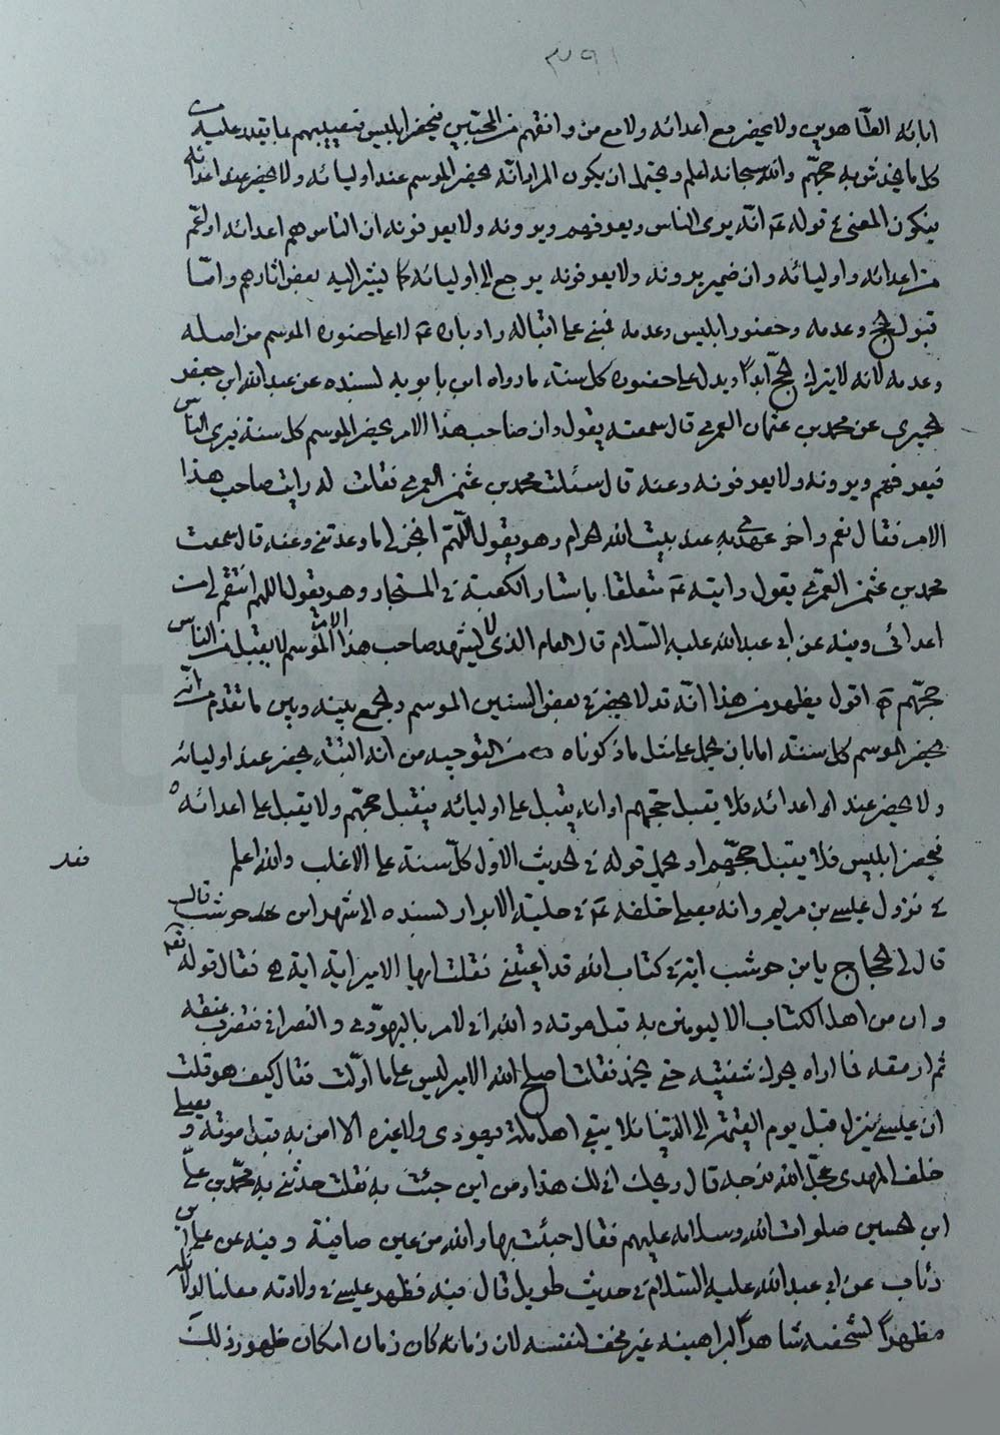 ٣٩١
ابائه الطاهرين ولا يحضر مع اعدائه ولا مع من وافقهم من المحبين فيحضر ابليس فيعيبهم بما يفسد عليهم
كل ما يحدثو به حجهم والله سبحانه اعلم ويحتمل ان يكون المراد انه يحضر الموسم عند اوليائه ولا يحضر عند اعدائه
فيكون المعنى في قوله ع انه يرى الناس ويعرفهم ويرونه ولا يعرفونه ان الناس هم اعدائه او اعم
من اعدائه واوليائه وان ضمير يرونه ولا يعرفونه يرجع الى اوليائه كما يشير اليه بعض اثارهم واما
قبول الحج وعدمه وحضور ابليس وعدمه فمبني على اقباله وادباره ع لا على حضوره الموسم من اصله
وعدمه لانه لا يترك الحج ابدا ويدل على حضوره كل سنة ما رواه ابن بابويه بسنده عن عبد الله ابن جعفر
الحميري عن محمد بن عثمان العمري قال سمعته يقول وان صاحب هذا الامر يحضر الموسم كل سنة فيرى الناس
فيعرفهم ويرونه ولا يعرفونه وعنه قال سئلت محمد بن عثمن العمري فقلت له رايت صاحب هذا
الامر فقال نعم واخر عهدي به عند بيت الله الحرام وهو يقول اللهم انجز لي ما وعدتني وعنه قال سمعت
محمد بن عثمن العمري يقول رايته ع متعلقا باستار الكعبة في المستجار وهو يقول اللهم انتقم لي من
اعدائي وفيه عن ابي عبد الله عليه السلام قال العام الذي لا يشهد صاحب هذا الامر الموسم لا يقبل من الناس
حجهم اقول يظهر من هذا انه قد لا يحضر في بعض السنين الموسم والجمع بينه وبين ما تقدم من انه
يحضر الموسم كل سنة اما بان يحمل على مثل ما ذكرناه من التوجيه من انه البتة يحضر عند اوليائه
ولا يحضر عند اعدائه فلا يقبل حجهم او انه يقبل على اوليائه فيقبل حجهم ولا يقبل على اعدائه
فيحضر ابليس فلا يقبل حجهم او يحمل قوله في الحديث الاول كل سنة على الاغلب والله اعلم
في نزول عيسى بن مريم وانه يصلي خلفه ع في حلية الابرار بسنده الى شهر ابن حوشب قال
قال لي الحجاج يا بن حوشب اية في كتاب الله قد اعيتني فقلت ايها الامير اية اية هي فقال قوله تعالى
وان من اهل الكتاب الا ليومنن به قبل موته والله اني لامر باليهودي والنصراني فتضرب عنقه
ثم ارمقه فما اراه يحرك شفتيه حتى يخمد فقلت اصلح الله الامير ليس على ما اولت فقال كيف هو قلت
ان عيسى ينزل قبل يوم القيمة الى الدنيا فلا يبقى اهل ملة يهودي ولا غيره الا امن به قبل موته ويصلي
خلف المهدي عجل الله فرجه قال ويحك انى لك هذا ومن اين جئت به فقلت حدثني به محمد بن علي
ابن الحسين صلوات الله وسلامه عليهم فقال جئت بها والله من عين صافية وفيه عن علي ابن
رئاب عن ابي عبد الله عليه السلام في حديث طويل قال فيه فظهر عيسى في ولادته معلنا لدلائله
مظهرا لشخصه شاهدا لبراهينه غير مخف لنفسه لان زمانه كان زمان امكان ظهور ذلك